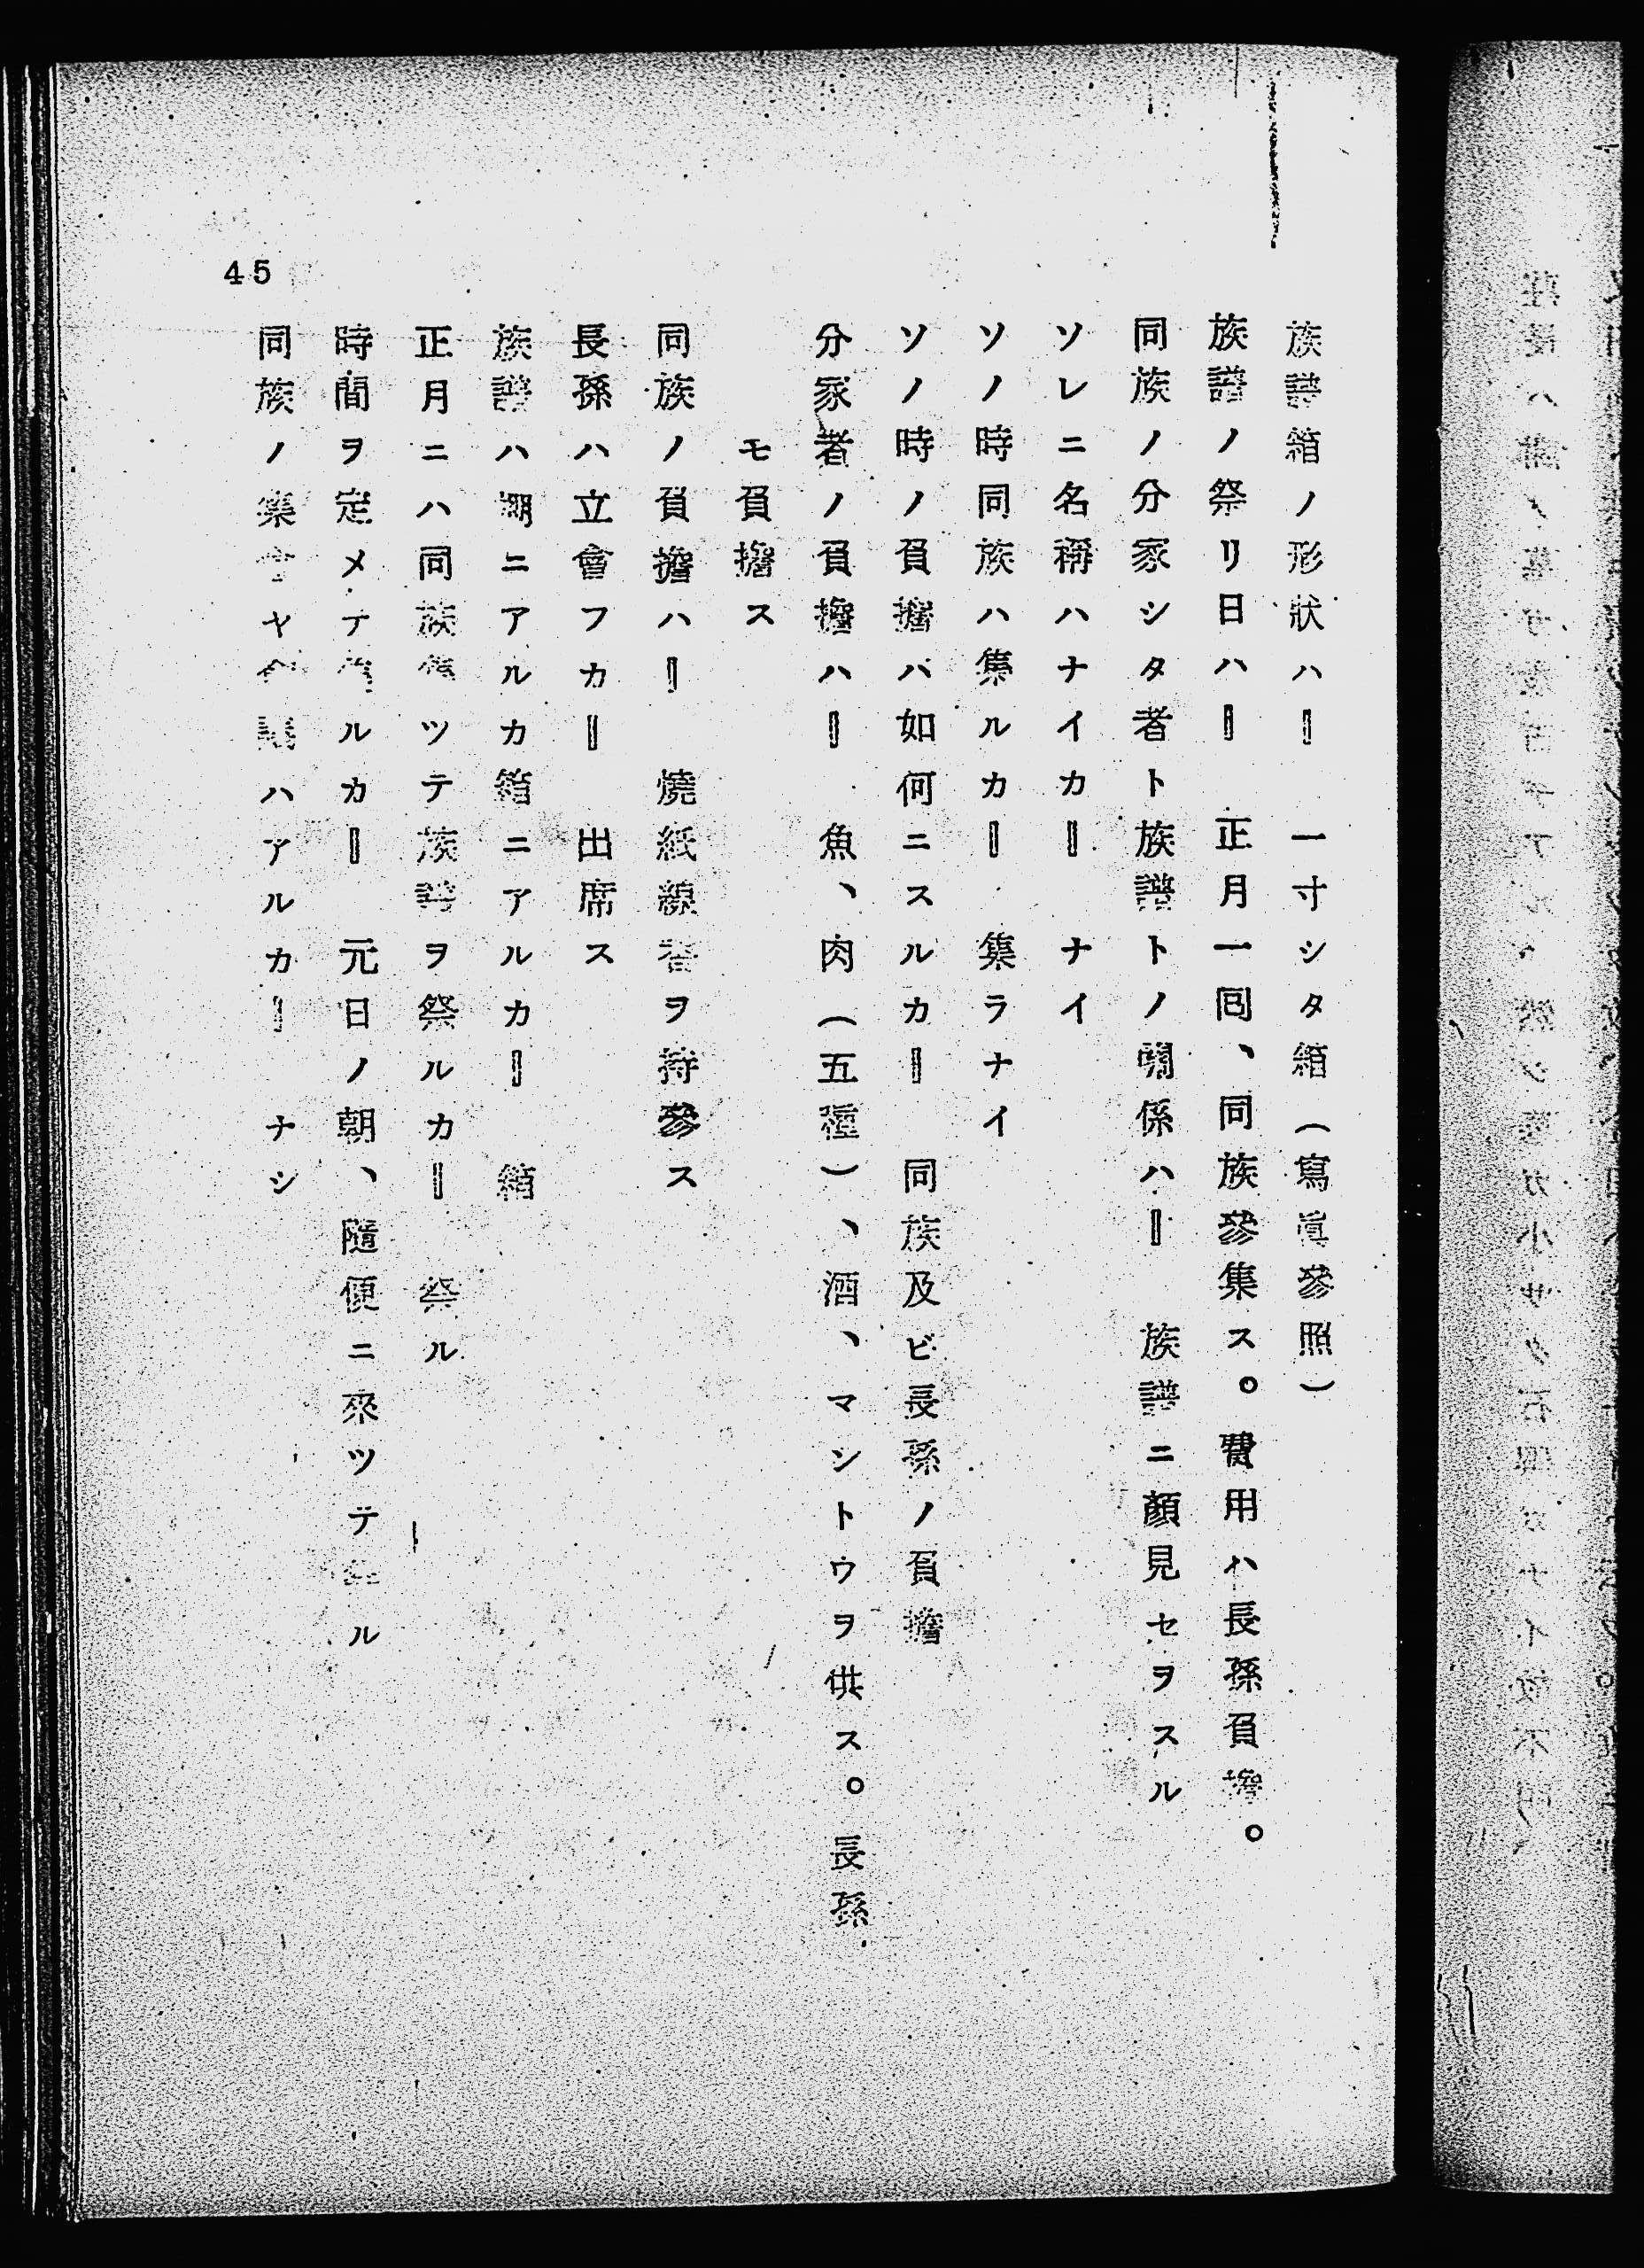 族譜箱ノ形狀ハ＝　一寸シタ箱（寫眞參照）
族譜ノ祭リ日ハ＝　正月一囘、同族參集ス。費用ハ長孫負擔。
同族ノ分家シタ者ト族譜トノ關係ハ＝　族譜ニ顏見セヲスル
ソレニ名稱ハナイカ＝　ナイ
ソノ時同族ハ集ルカ＝　集ラナイ
ソノ時ノ負擔バ如何ニスルカ＝　同族及ビ長孫ノ負擔
分家者ノ負擔ハ＝　魚、肉（五種）、酒、マントウヲ供ス。長孫
モ負擔ス
同族ノ負擔ハ＝　燒紙線香ヲ持參ス
長孫ハ立會フカ＝　出席ス
族譜ハ棚ニアルカ箱ニアルカ＝　箱
正月ニハ同族集ツテ族譜ヲ祭ルカ＝　祭ル
時間ヲ定メテルカ＝　元日ノ朝、隨便ニ來ツテル
同族ノ集會ヤハアルカ＝　ナシ
45